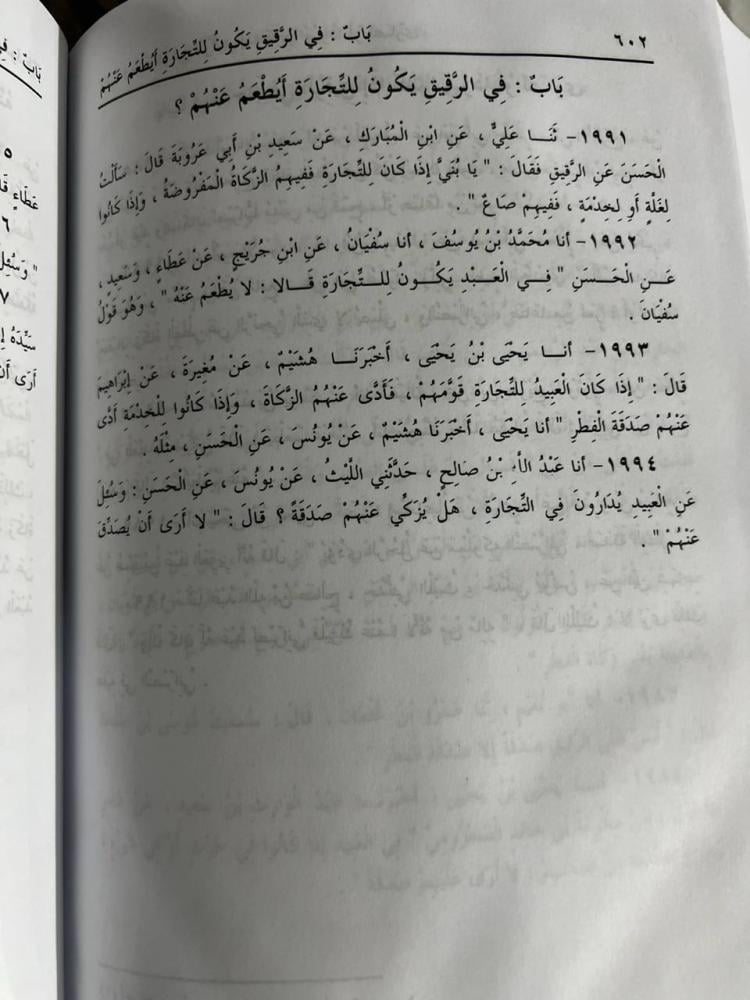 ٦٠٢
بَابٌ : فِي الرَّقِيقِ يَكُونُ لِلتِّجَارَةِ أَيُطْعَمُ عَنْهُمْ
بَابٌ : فِي الرَّقِيقِ يَكُونُ لِلتِّجَارَةِ أَيُطْعَمُ عَنْهُمْ ؟
١٩٩١- ثَنَا عَلِيٌّ ، عَنِ ابْنِ الْمُبَارَكِ ، عَنْ سَعِيدِ بْنِ أَبِي عَرُوبَةَ قَالَ : سَأَلْتُ
الْحَسَنَ عَنِ الرَّقِيقِ فَقَالَ : " يَا بُنَيَّ إِذَا كَانَ لِلتِّجَارَةِ فَفِيهِمُ الزَّكَاةُ الْمَفْرُوضَةُ ، وَإِذَا كَانُوا
لِغَلَّةٍ أَوِ لِخِدْمَةٍ ، فَفِيهِمْ صَاعٌ " .
١٩٩٢- أنا مُحَمَّدُ بْنُ يُوسُفَ ، أنا سُفْيَانُ ، عَنِ ابْنِ جُرَيْجٍ ، عَنْ عَطَاءٍ ، وَسَعِيدٍ ،
عَنِ الْحَسَنِ " فِي الْعَبْدِ يَكُونُ لِلتِّجَارَةِ قَالا : لا يُطْعَمُ عَنْهُ " ، وَهُوَ قَوْلُ
سُفْيَانَ .
١٩٩٣- أنا يَحْيَى بْنُ يَحْيَى ، أَخْبَرَنَا هُشَيْمٌ ، عَنْ مُغِيرَةَ ، عَنْ إِبْرَاهِيمَ
قَالَ : " إِذَا كَانَ الْعَبِيدُ لِلتِّجَارَةِ قَوَّمَهُمْ ، فَأَدَّى عَنْهُمُ الزَّكَاةَ ، وَإِذَا كَانُوا لِلْخِدْمَةِ أَدَّى
عَنْهُمْ صَدَقَةَ الْفِطْرِ " أنا يَحْيَى ، أَخْبَرَنَا هُشَيْمٌ ، عَنْ يُونُسَ ، عَنِ الْحَسَنِ ، مِثْلَهُ .
١٩٩٤- أنا عَبْدُ بْنُ صَالِحٍ ، حَدَّثَنِي اللَّيْثُ ، عَنْ يُونُسَ ، عَنِ الْحَسَنِ : وَسُئِلَ
عَنِ الْعَبِيدِ يُدَارُونَ فِي التِّجَارَةِ ، هَلْ يُزَكِّي عَنْهُمْ صَدَقَةً ؟ قَالَ : " لا أَرَى أَنْ يُصَدِّقَ
عَنْهُمْ " .
بَابٌ :
٥
عَطَاءٍ
٦
" وَسُئِلَ
٧
سَيِّدَهُ
أَرَى أَنْ